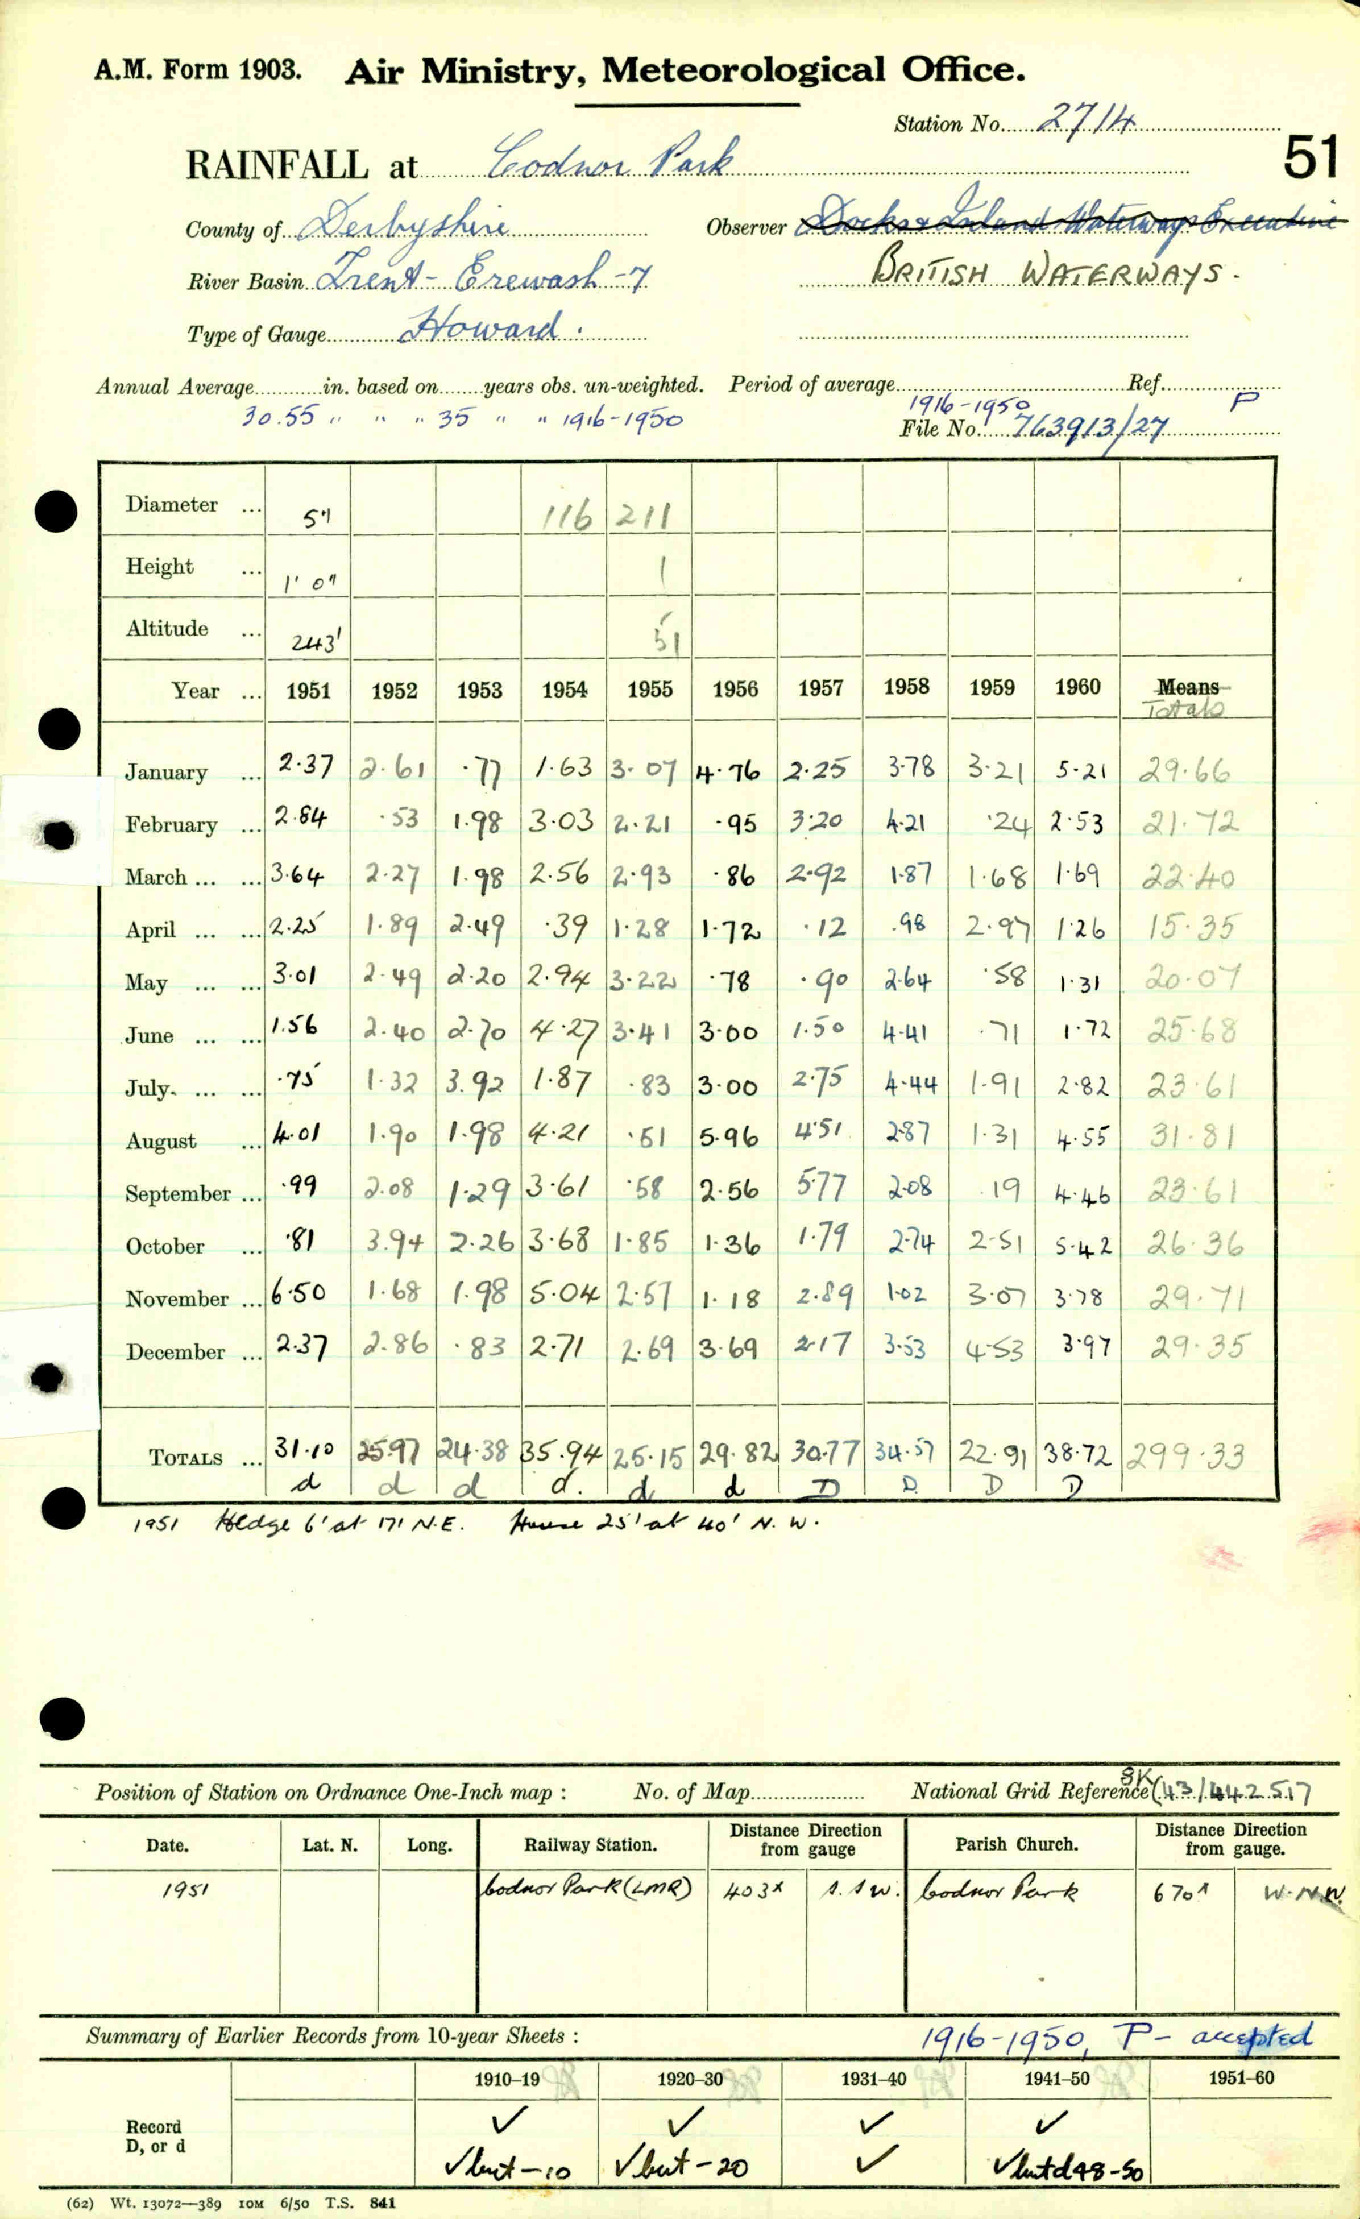 A.M. Form 1903. Air Ministry, Meteorological Office.
Station No. 2714
51
RAINFALL at Codnor Park
County of Derbyshire Observer Docks & Inland Waterways Executive
River Basin Trent - Erewash - 7 BRITISH WATERWAYS.
Type of Gauge Howard.
Annual Average in. based on years obs. un-weighted. Period of average Ref.
30.55 " " " 35 " " 1916-1950 1916-1950 P
File No. 763913/27
Diameter ... 5" 116 211
Height ... 1' 0" 1
Altitude ... 243' 51
Year ... 1951 1952 1953 1954 1955 1956 1957 1958 1959 1960 Means
Totals
January ... 2.37 2.61 .77 1.63 3.07 4.76 2.25 3.78 3.21 5.21 29.66
February ... 2.84 .53 1.98 3.03 2.21 .95 3.20 4.21 .24 2.53 21.72
March ... ... 3.64 2.27 1.98 2.56 2.93 .86 2.92 1.87 1.68 1.69 22.40
April ... ... 2.25 1.89 2.49 .39 1.28 1.72 .12 .98 2.97 1.26 15.35
May ... ... 3.01 2.49 2.20 2.94 3.22 .78 .90 2.64 .58 1.31 20.07
June ... ... 1.56 2.40 2.70 4.27 3.41 3.00 1.50 4.41 .71 1.72 25.68
July. ... ... .75 1.32 3.92 1.87 .83 3.00 2.75 4.44 1.91 2.82 23.61
August ... 4.01 1.90 1.98 4.21 .51 5.96 4.51 2.87 1.31 4.55 31.81
September ... .99 2.08 1.29 3.61 .58 2.56 5.77 2.08 .19 4.46 23.61
October ... .81 3.94 2.26 3.68 1.85 1.36 1.79 2.74 2.51 5.42 26.36
November ... 6.50 1.68 1.98 5.04 2.57 1.18 2.89 1.02 3.07 3.78 29.71
December ... 2.37 2.86 .83 2.71 2.69 3.69 2.17 3.53 4.53 3.97 29.35
TOTALS ... 31.10 25.97 24.38 35.94 25.15 29.82 30.77 34.57 22.91 38.72 299.33
d d d d. d d D D. D D
1951 Hedge 6' at 17' N.E. House 25' at 40' N.W.
Position of Station on Ordnance One-Inch map : No. of Map National Grid Reference SK (43/442517
Date. Lat. N. Long. Railway Station. Distance from gauge Direction Parish Church. Distance from gauge. Direction
1951 Codnor Park (LMR) 403x S.SW. Codnor Park 670x W.N.W.
Summary of Earlier Records from 10-year Sheets : 1916-1950, P - accepted
1910–19 1920–30 1931–40 1941–50 1951–60
Record ✓ ✓ ✓ ✓
D, or d ✓ but -10 ✓ but -20 ✓ ✓ but d 48-50
(62) Wt. 13072—389 10M 6/50 T.S. 841